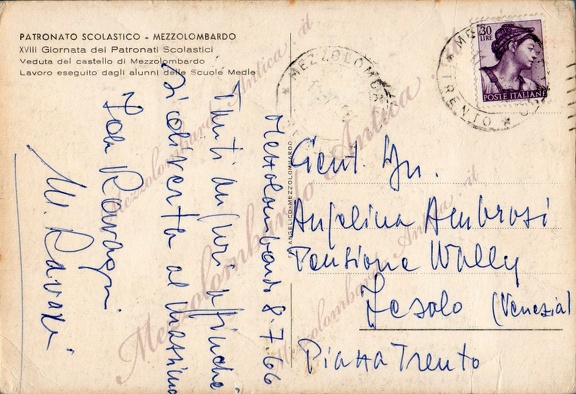 PATRONATO SCOLASTICO - MEZZOLOMBARDO
XVIII Giornata dei Patronati Scolastici
Veduta del castello di Mezzolombardo
Lavoro eseguito dagli alunni delle Scuole Medie
Mezzolombardo 8.7.66
Tanti auguri affinchè
si diverta al massimo
Ida Ravagni
M.
MEZZOLOMBARDO
30
LIRE
POSTE ITALIANE
TRENTO
ANGELICO-MEZZOLOMBARDO
Gent. Sn.
Angelina Ambrosi
Pensione Wally
Jesolo (Venezia)
Piazza Trento
Mezzolombardo Antica.it
Mezzolombardo Antica.it
Mezzolombardo Antica.it